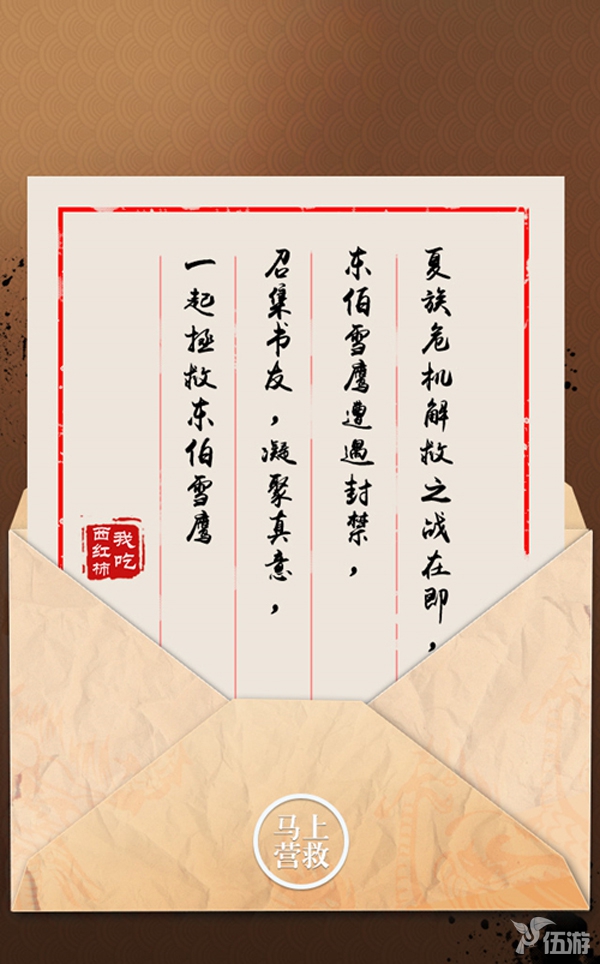 夏族危机解救之战在即，
东伯雪鹰遭遇封禁，
召集书友，凝聚真意，
一起拯救东伯雪鹰
我吃
西红柿
马上
营救
伍游